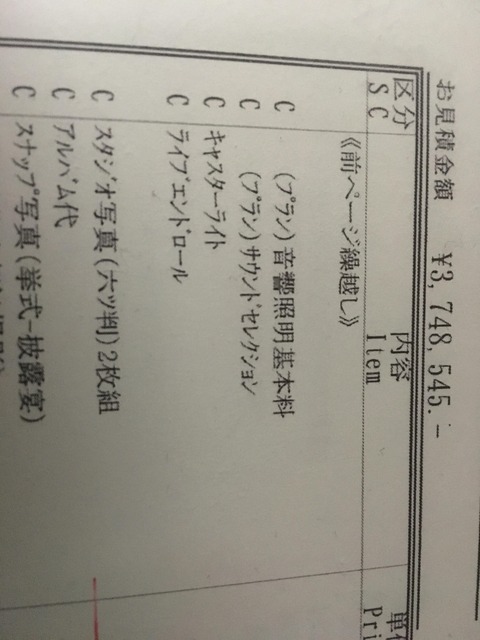 お見積金額　¥3,748,545.-
区分　内容　単
S C　Item　Pri
《前ページ繰越し》
C　(プラン)音響照明基本料
C　(プラン)サウンドセレクション
C　キャスターライト
C　ライブエンドロール
C　スタジオ写真(六ツ判)2枚組
C　アルバム代
C　スナップ写真(挙式-披露宴)